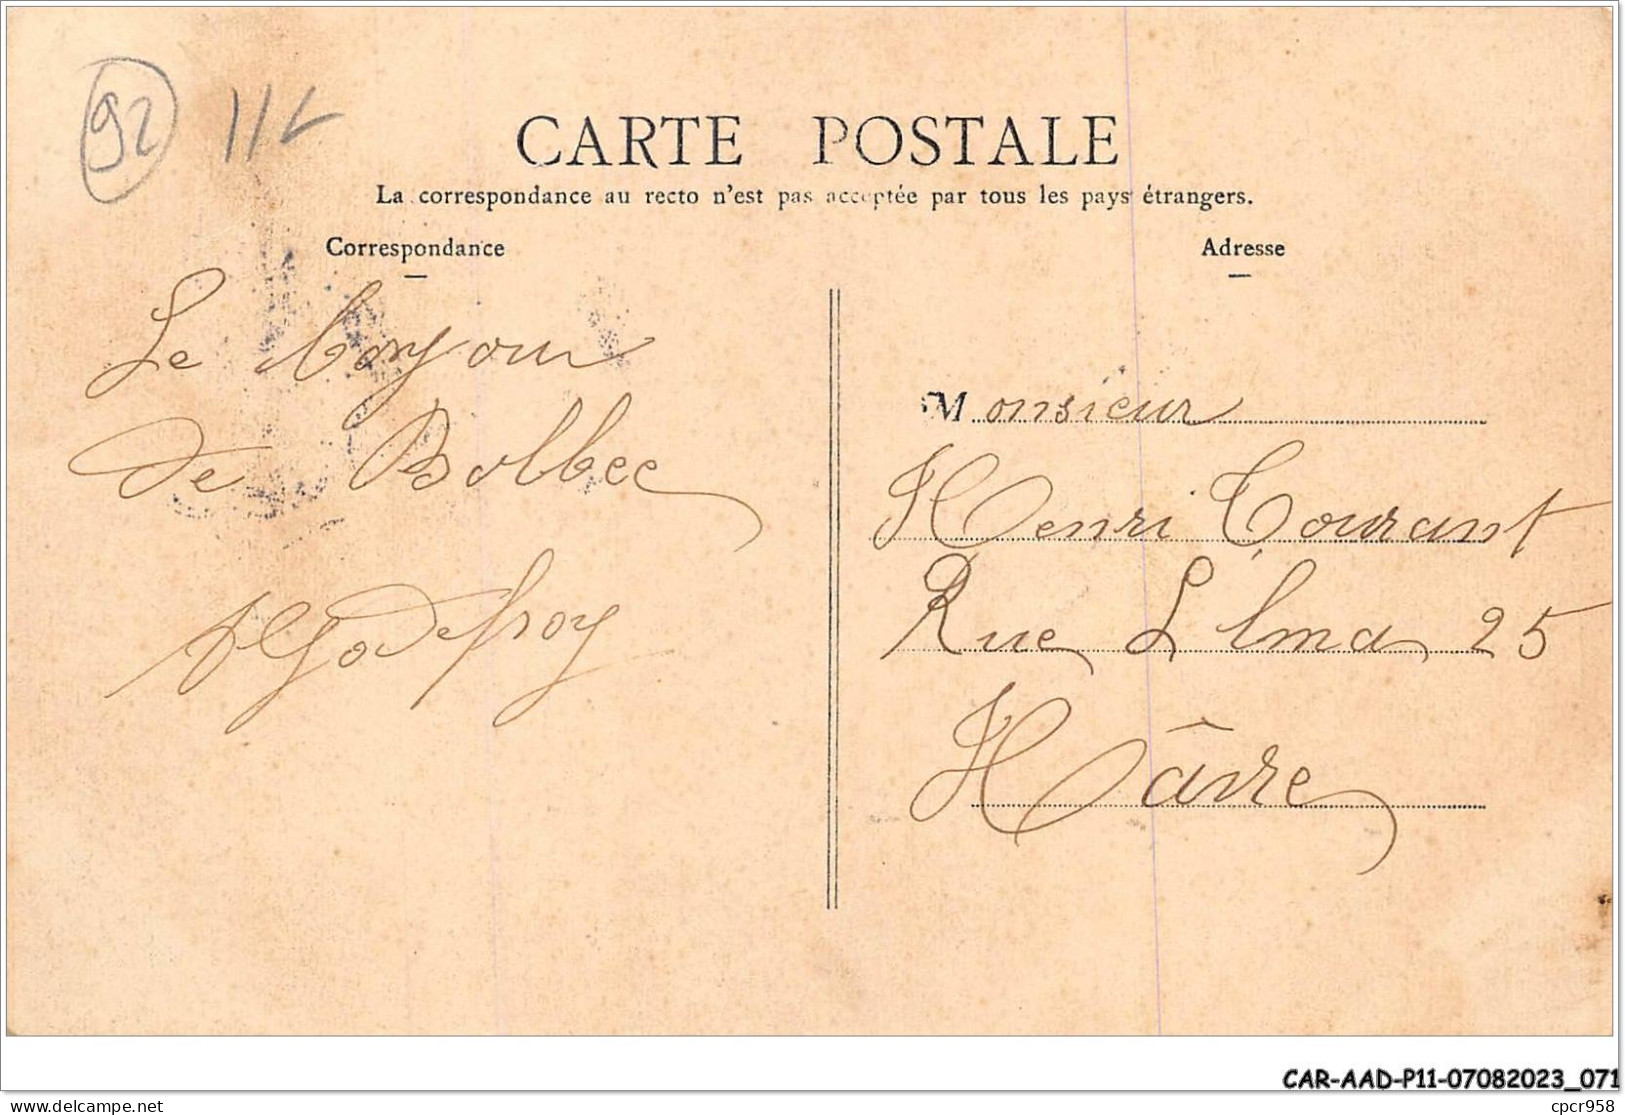 92
CARTE POSTALE
La correspondance au recto n'est pas acceptée par tous les pays étrangers.
Correspondance
Adresse
Le bonjour
de Bolbec
Godefroy
Monsieur
Henri Courant
Rue L'lma 25
Hâvre
CAR-AAD-P11-07082023_071
delcampe.net
cpcr958